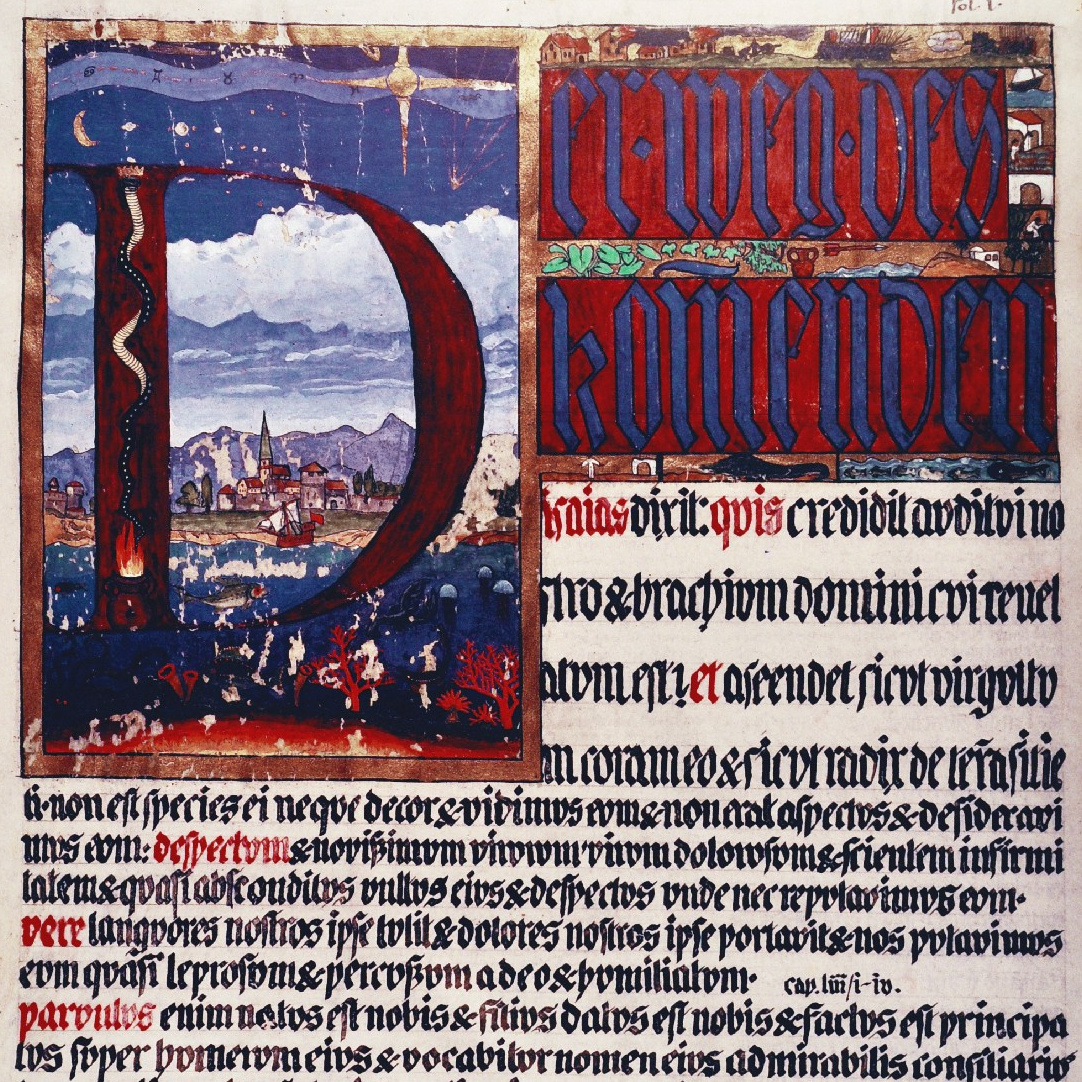 Fol. 1.
Der·weg·des
kom̄enden
isaias dixit: qvis credidit avditvi no
stro & brachivm domini cvi revel
atvm est? et ascendet sicvt virgvltv
m coram eo & sicvt radix de terra sitie
ti·non est species ei neqve decor & vidimvs evm & non erat aspectvs & desideravi
mvs evm: despectvm & novißimvm virorvm virvm dolorosvm & scientem infirmi
tatem & qvasi absconditvs vvltvs eivs & despectvs vnde nec repvtavimvs evm·
vere langvores nostros ipse tvlit & dolores nostros ipse portavit & nos pvtavimvs
evm qvasi leprosvm & percvßvm a deo & hvmiliatvm· cap. liii/i-iv.
parvulvs enim natvs est nobis & filivs datvs est nobis & factvs est principa
tvs svper hvmervm eivs & vocabitvr nomen eivs admirabilis consiliarivs